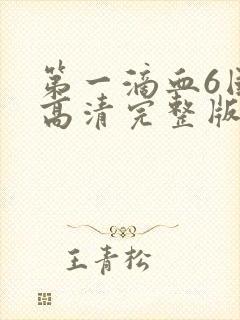 第一滴血6国
高清完整版
王青松